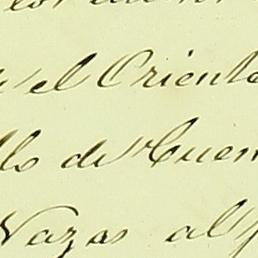 el Oriente
llo de Cuen
Vazas al